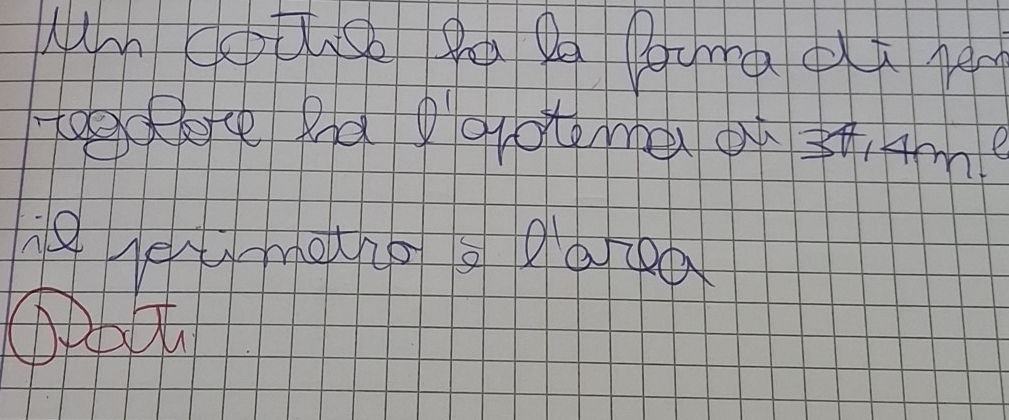 Un cortile ha la forma di pen
regolare ha l'apotema di 34,4m. e
il perimetro e l'area
① Dati